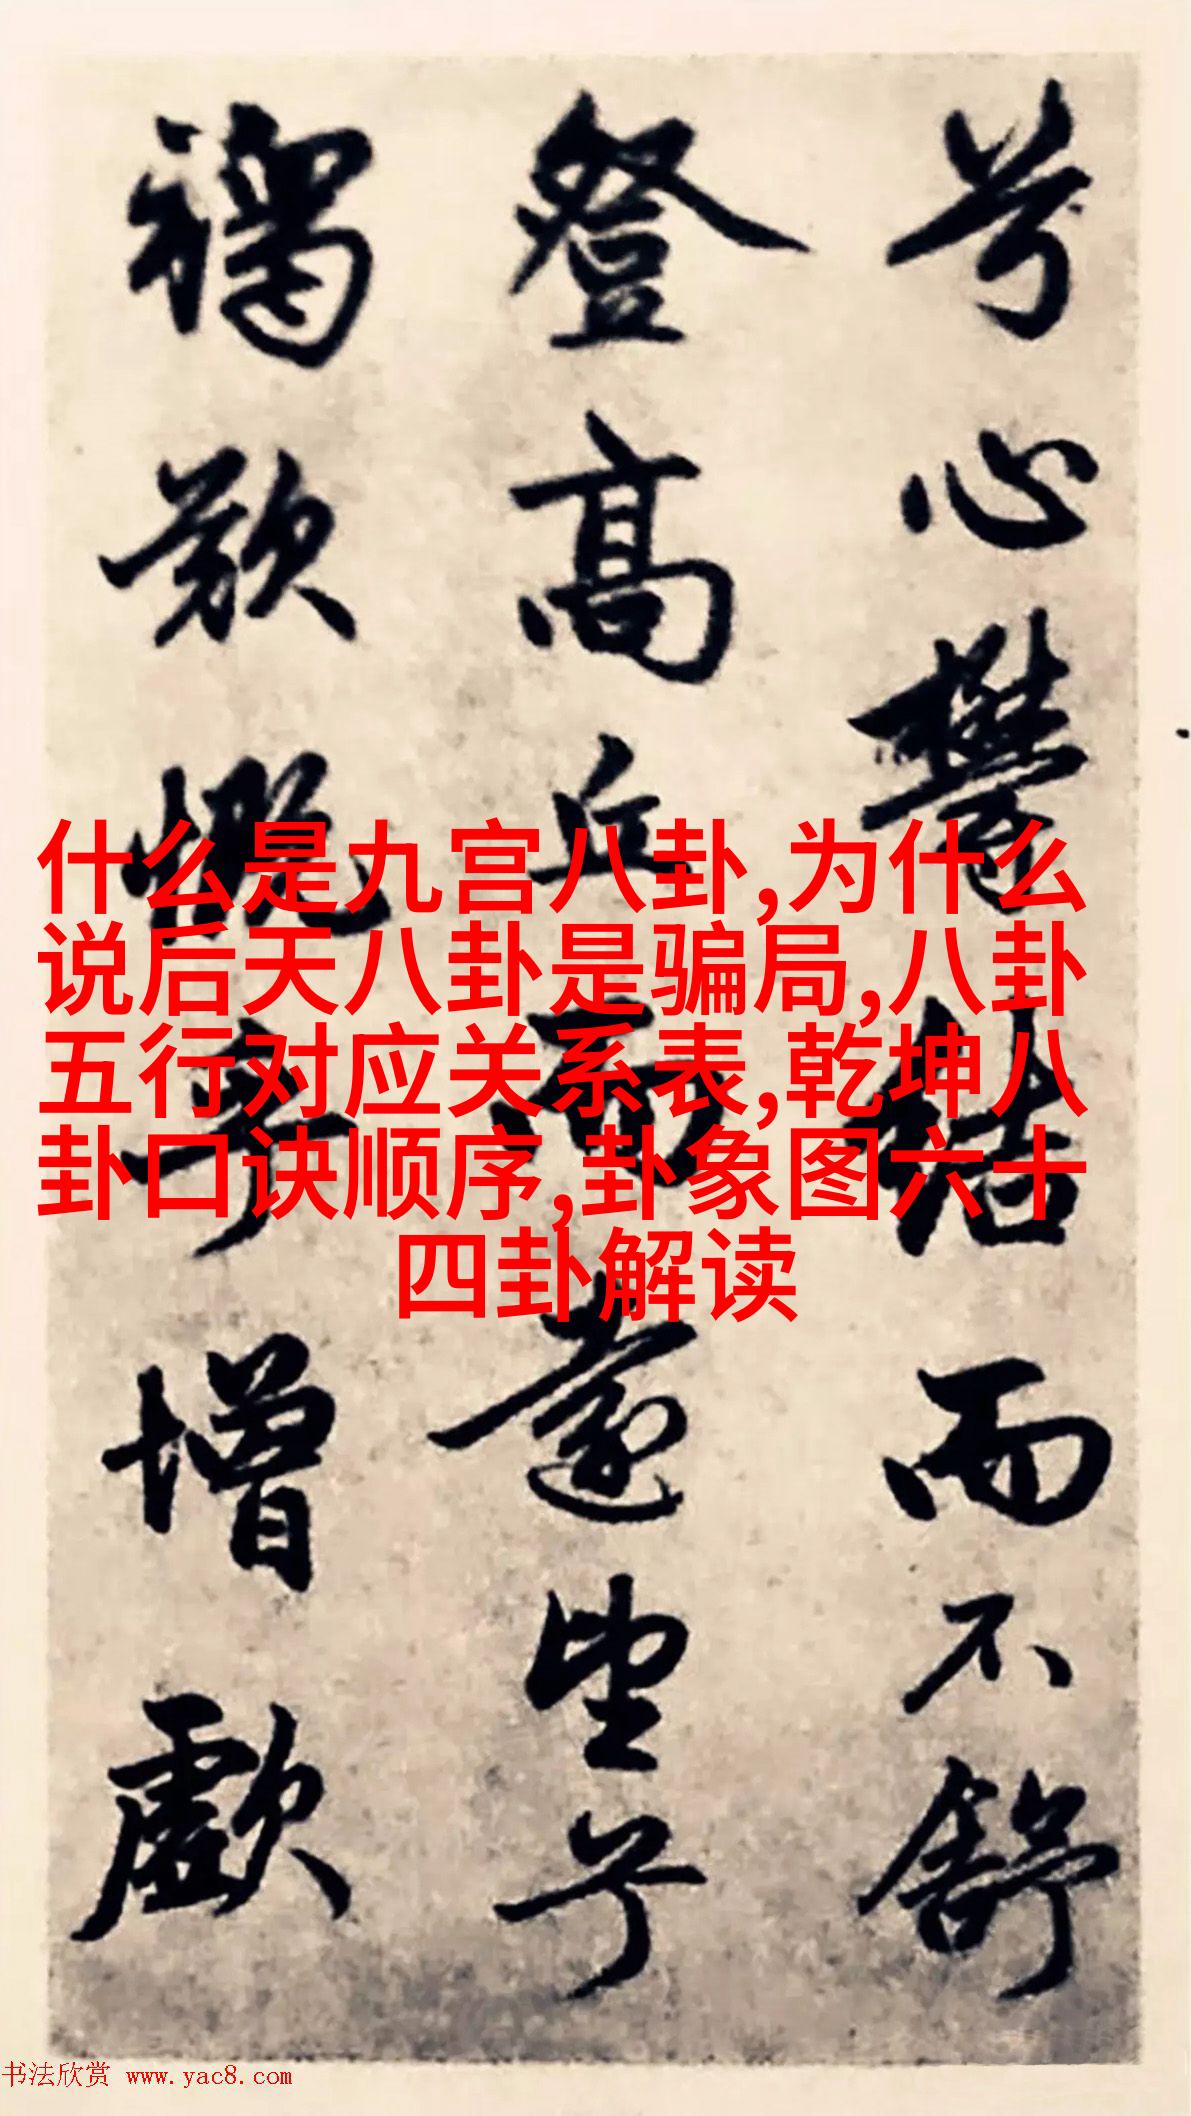 兮心鬱結而不舒
登高丘而遠望兮
慨增歔
什么是九宫八卦,为什么
说后天八卦是骗局,八卦
五行对应关系表,乾坤八
卦口诀顺序,卦象图六十
四卦解读
书法欣赏 www.yac8.com